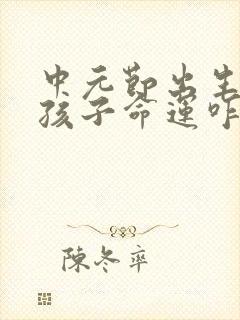 中元節出生
孩子命運咋
陳冬率